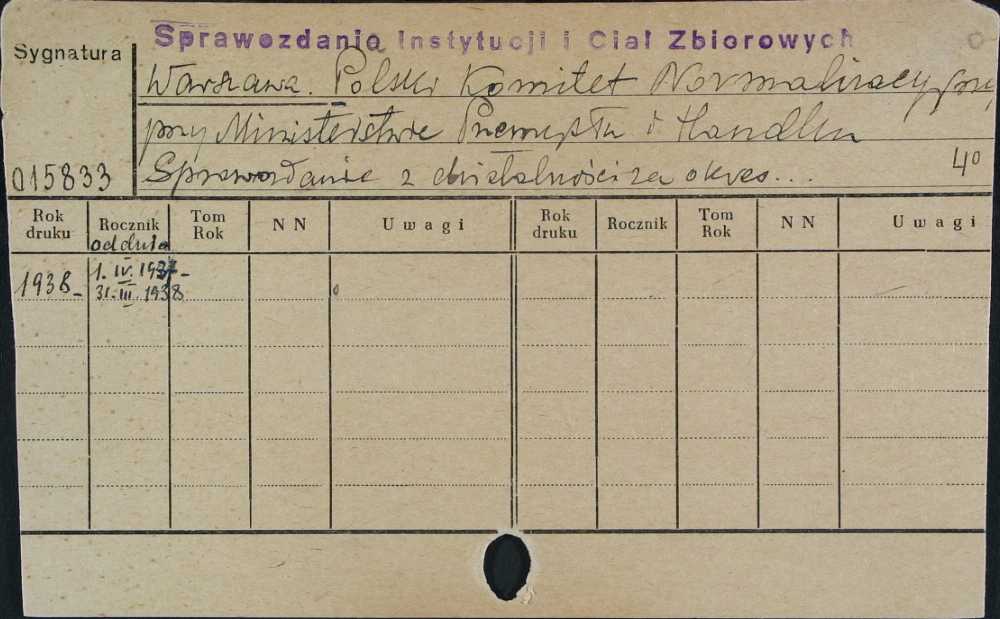 Sprawozdania Instytucji i Ciał Zbiorowych
Sygnatura
Warszawa. Polski Komitet Normalizacyjny
przy Ministerstwie Przemysłu i Handlu
015833
Sprawozdanie z działalności za okres...
4o
Rok druku
Rocznik
Tom Rok
N N
Uwagi
Rok druku
Rocznik
Tom Rok
N N
Uwagi
od dnia
1938_
1. IV. 1937_
31. III. 1938